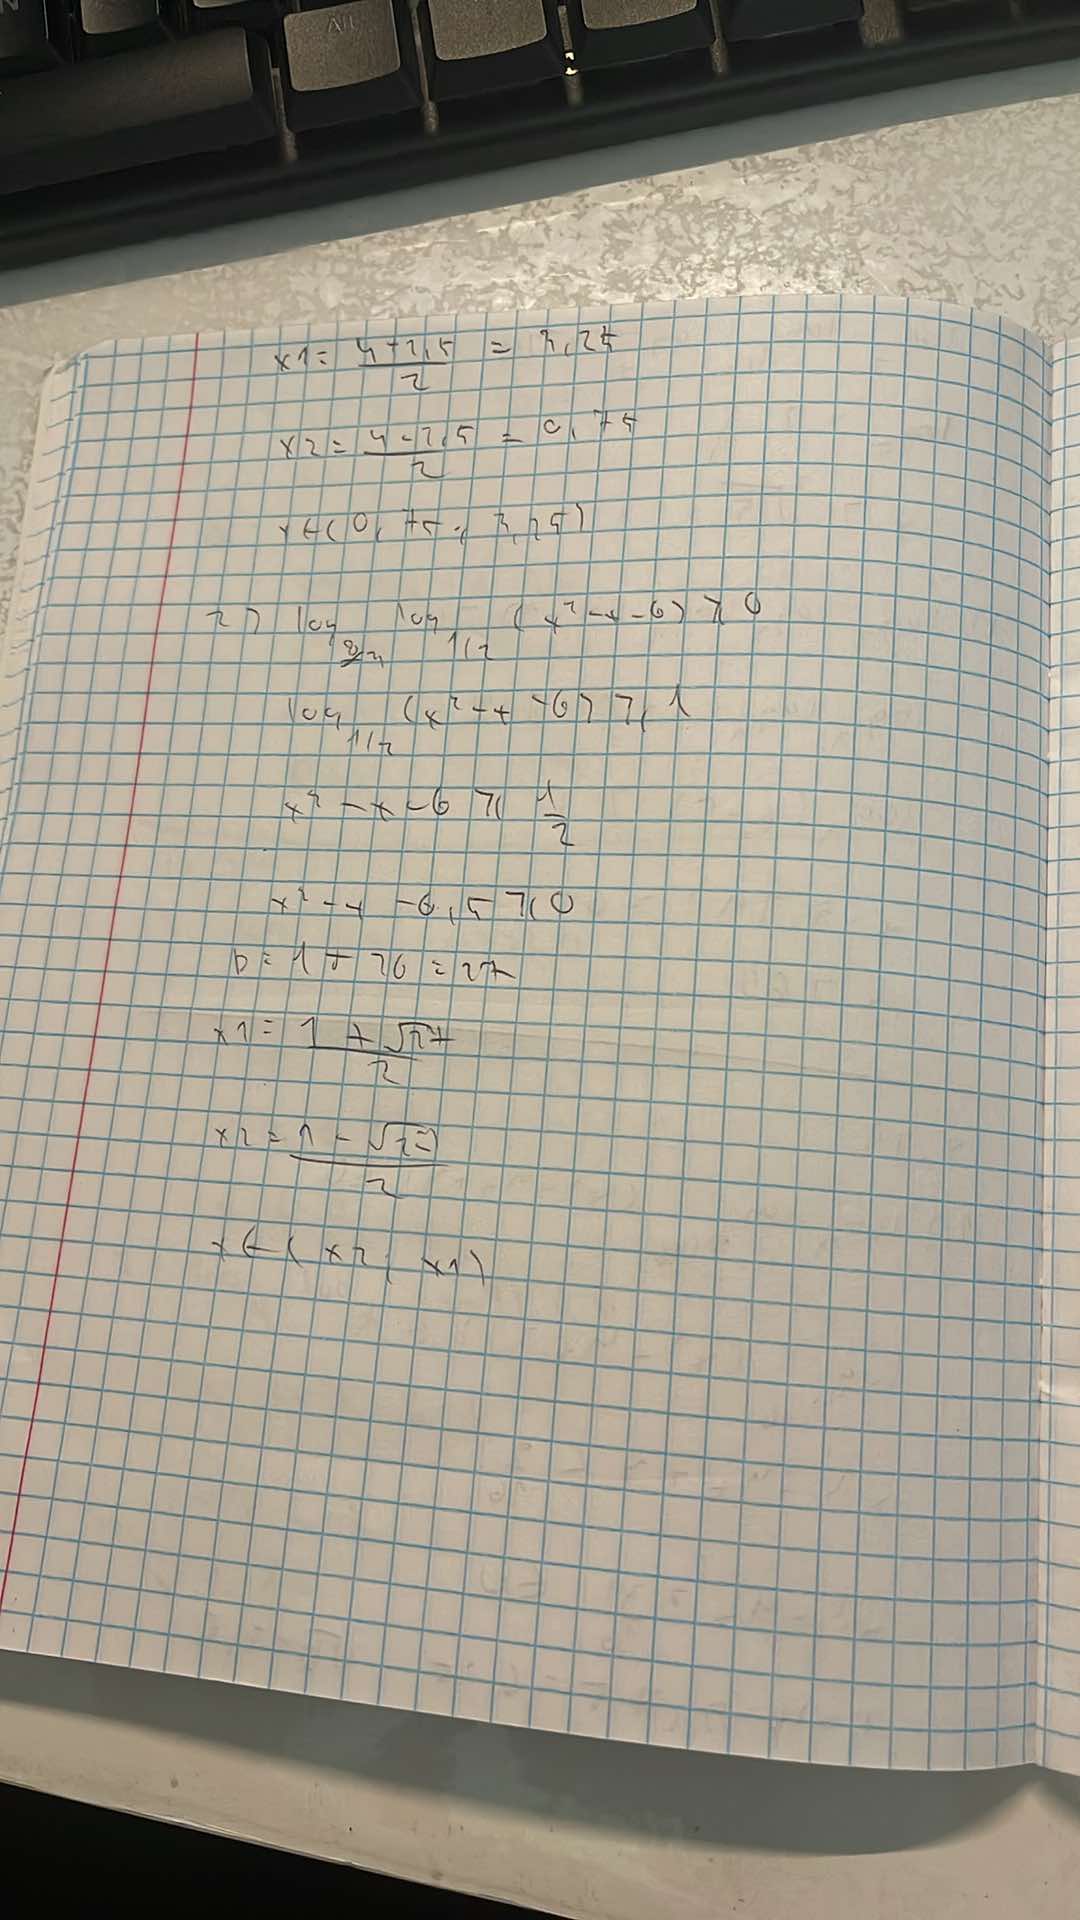 Alt
x1 = (4+2,5)/2 = 3,25
x2 = (4-2,5)/2 = 0,75
x∈(0,75; 3,25)
2) log log_1/2 (x² - x - 6) ≥ 0
log_1/2 (x² - x - 6) ≥ 1
x² - x - 6 ≥ 1/2
x² - x - 6,5 ≥ 0
D = 1 + 26 = 27
x1 = (1 + √27)/2
x2 = (1 - √27)/2
x ∈ (x2; x1)